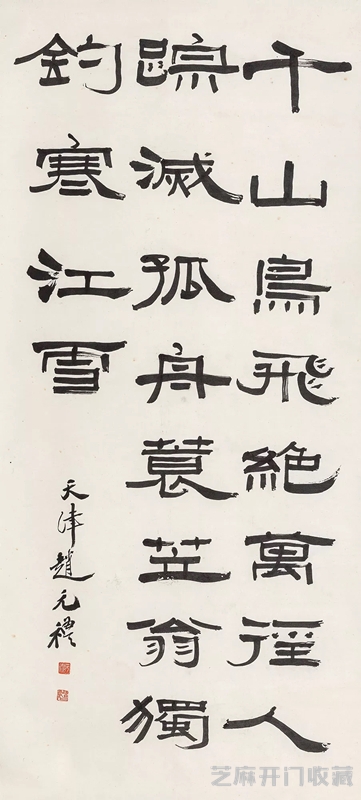 千山鳥飛絕萬徑人
踪滅孤舟蓑笠翁獨
釣寒江雪
天津趙元禮
芝麻开门收藏